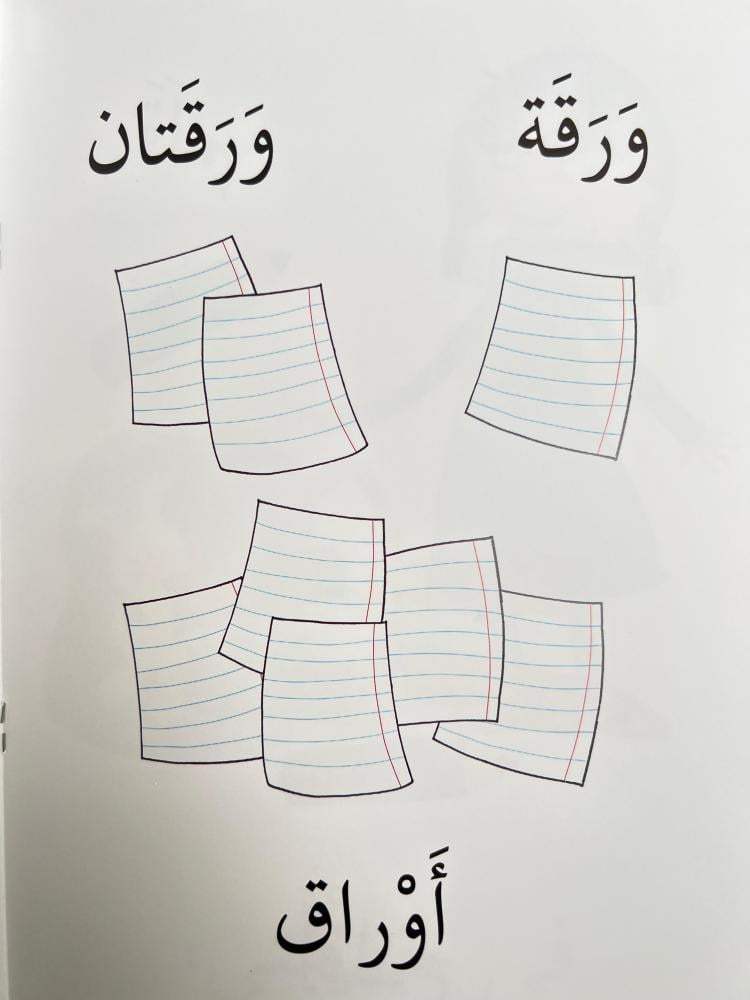 وَرَقَة
وَرَقَتان
أَوْراق